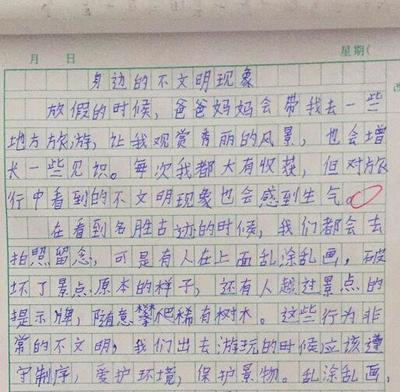 月 日 星期(
身边的不文明现象
放假的时候，爸爸妈妈会带我去一些
地方旅游，让我观赏秀丽的风景，也会增
长一些见识。每次我都大有收获，但对旅
行中看到的不文明现象也会感到生气。
在看到名胜古迹的时候，我们都会去
拍照留念，可是有人在上面乱涂乱画，破
坏了景点原本的样子，还有人越过景点的
提示牌，随意攀爬稀有树木。这些行为非
常的不文明，我们出去游玩的时候应该遵
守制序，爱护环境，保护景物。乱涂乱画，